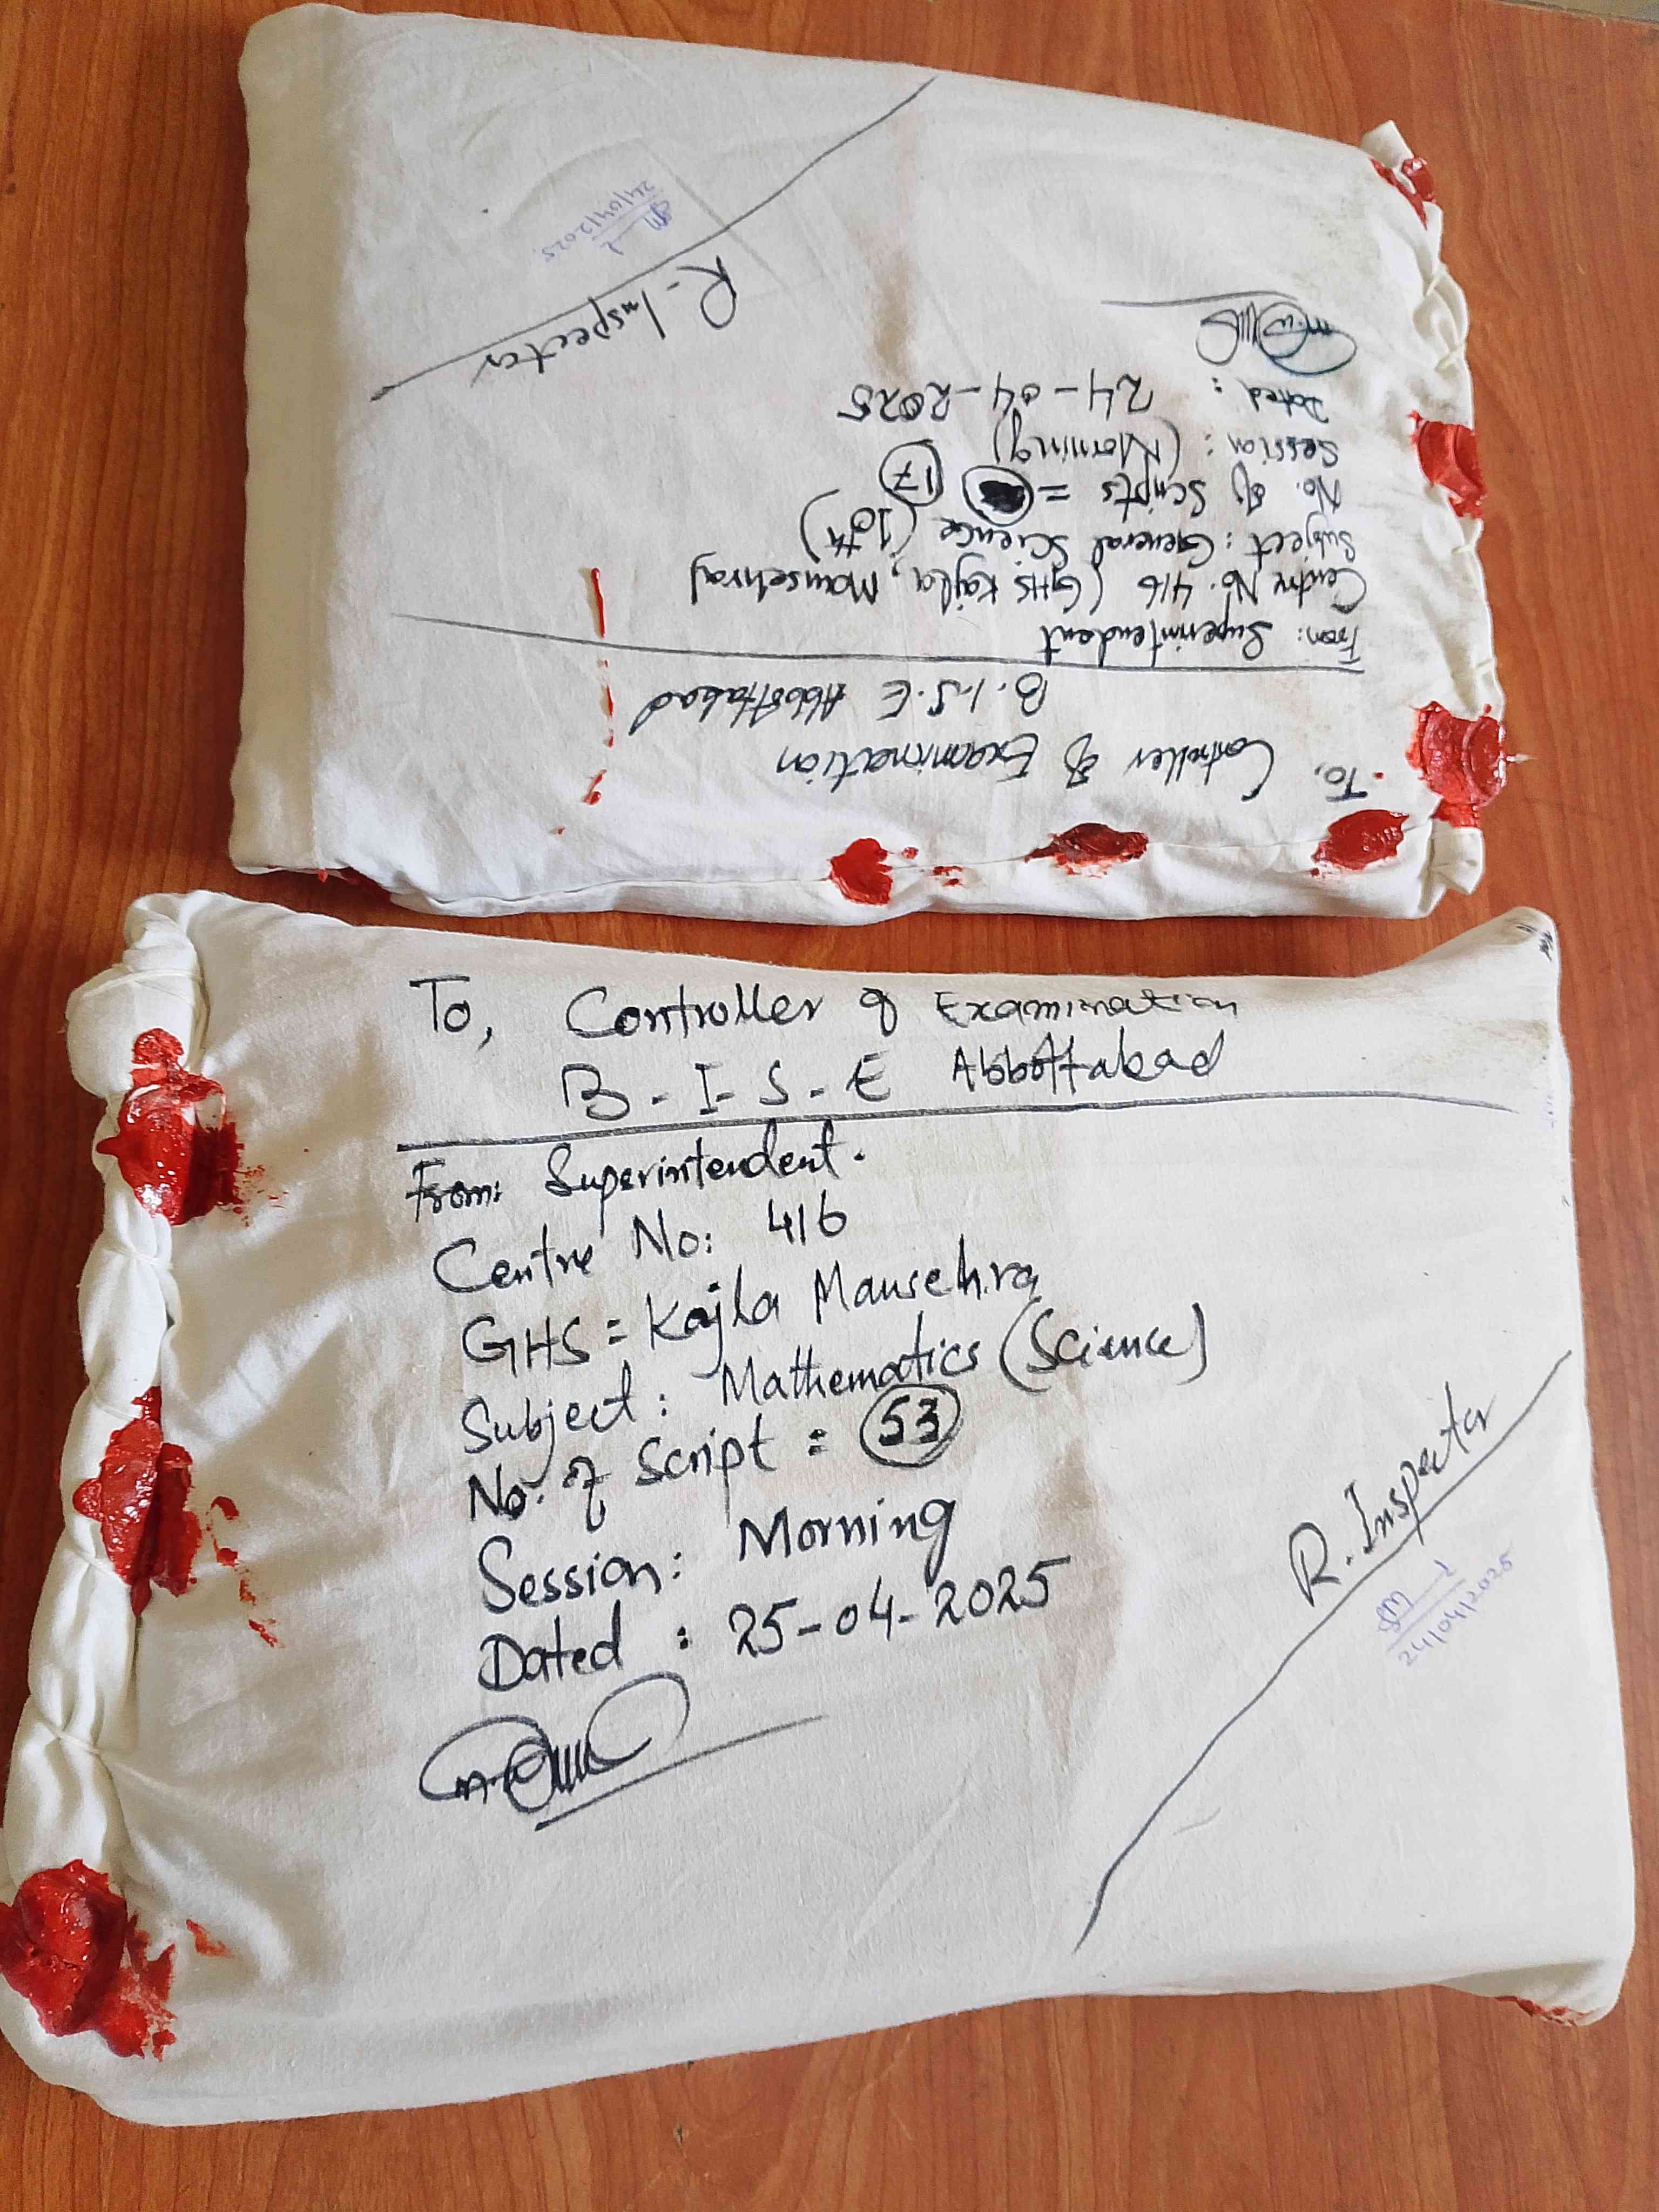 To, Controller of Examination
B.I.S.E Abbottabad
From: Superintendent
Centre No. 416 (GHS Kajla, Mansehra)
Subject: General Science (10th)
No. of Scripts = 17
Session: (Morning)
Dated: 24-04-2025
R-Inspector
24/04/2025
To, Controller of Examination
B-I-S-E Abbottabad
From: Superintendent.
Centre No: 416
GHS = Kajla Mansehra
Subject: Mathematics (Science)
No. of Script = 53
Session: Morning
Dated : 25-04-2025
R.Inspector
24/04/2025